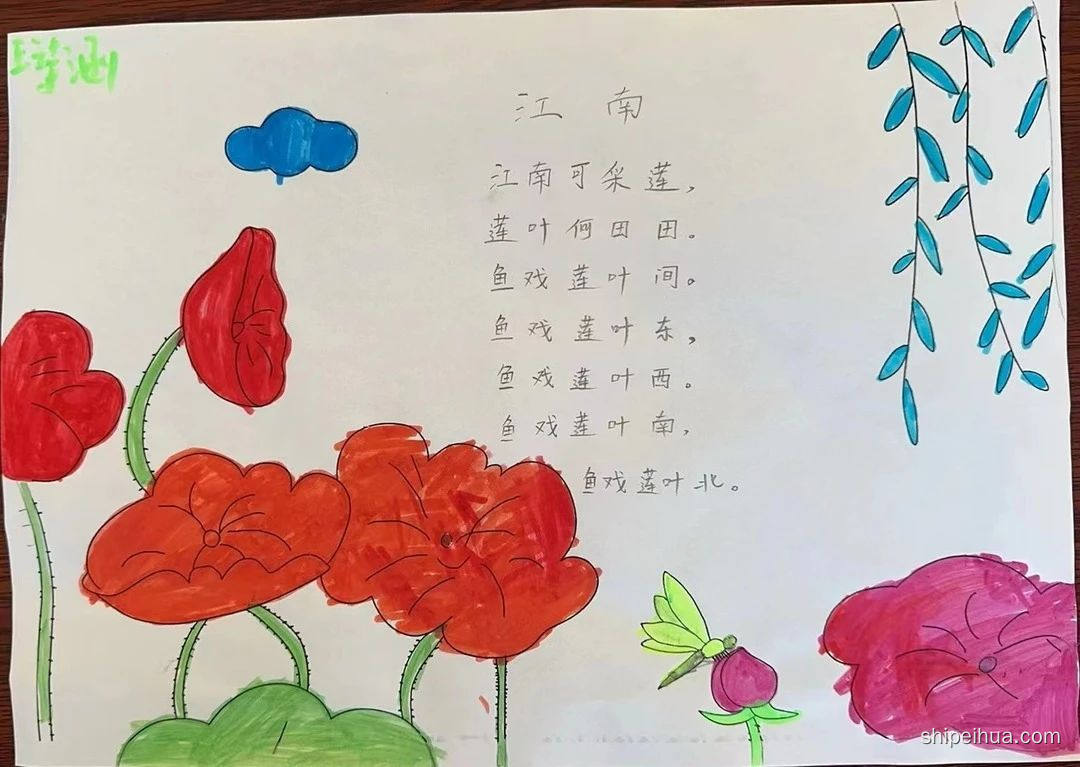 江南
江南可采莲，
莲叶何田田。
鱼戏莲叶间。
鱼戏莲叶东，
鱼戏莲叶西。
鱼戏莲叶南，
鱼戏莲叶北。
shipeihua.com